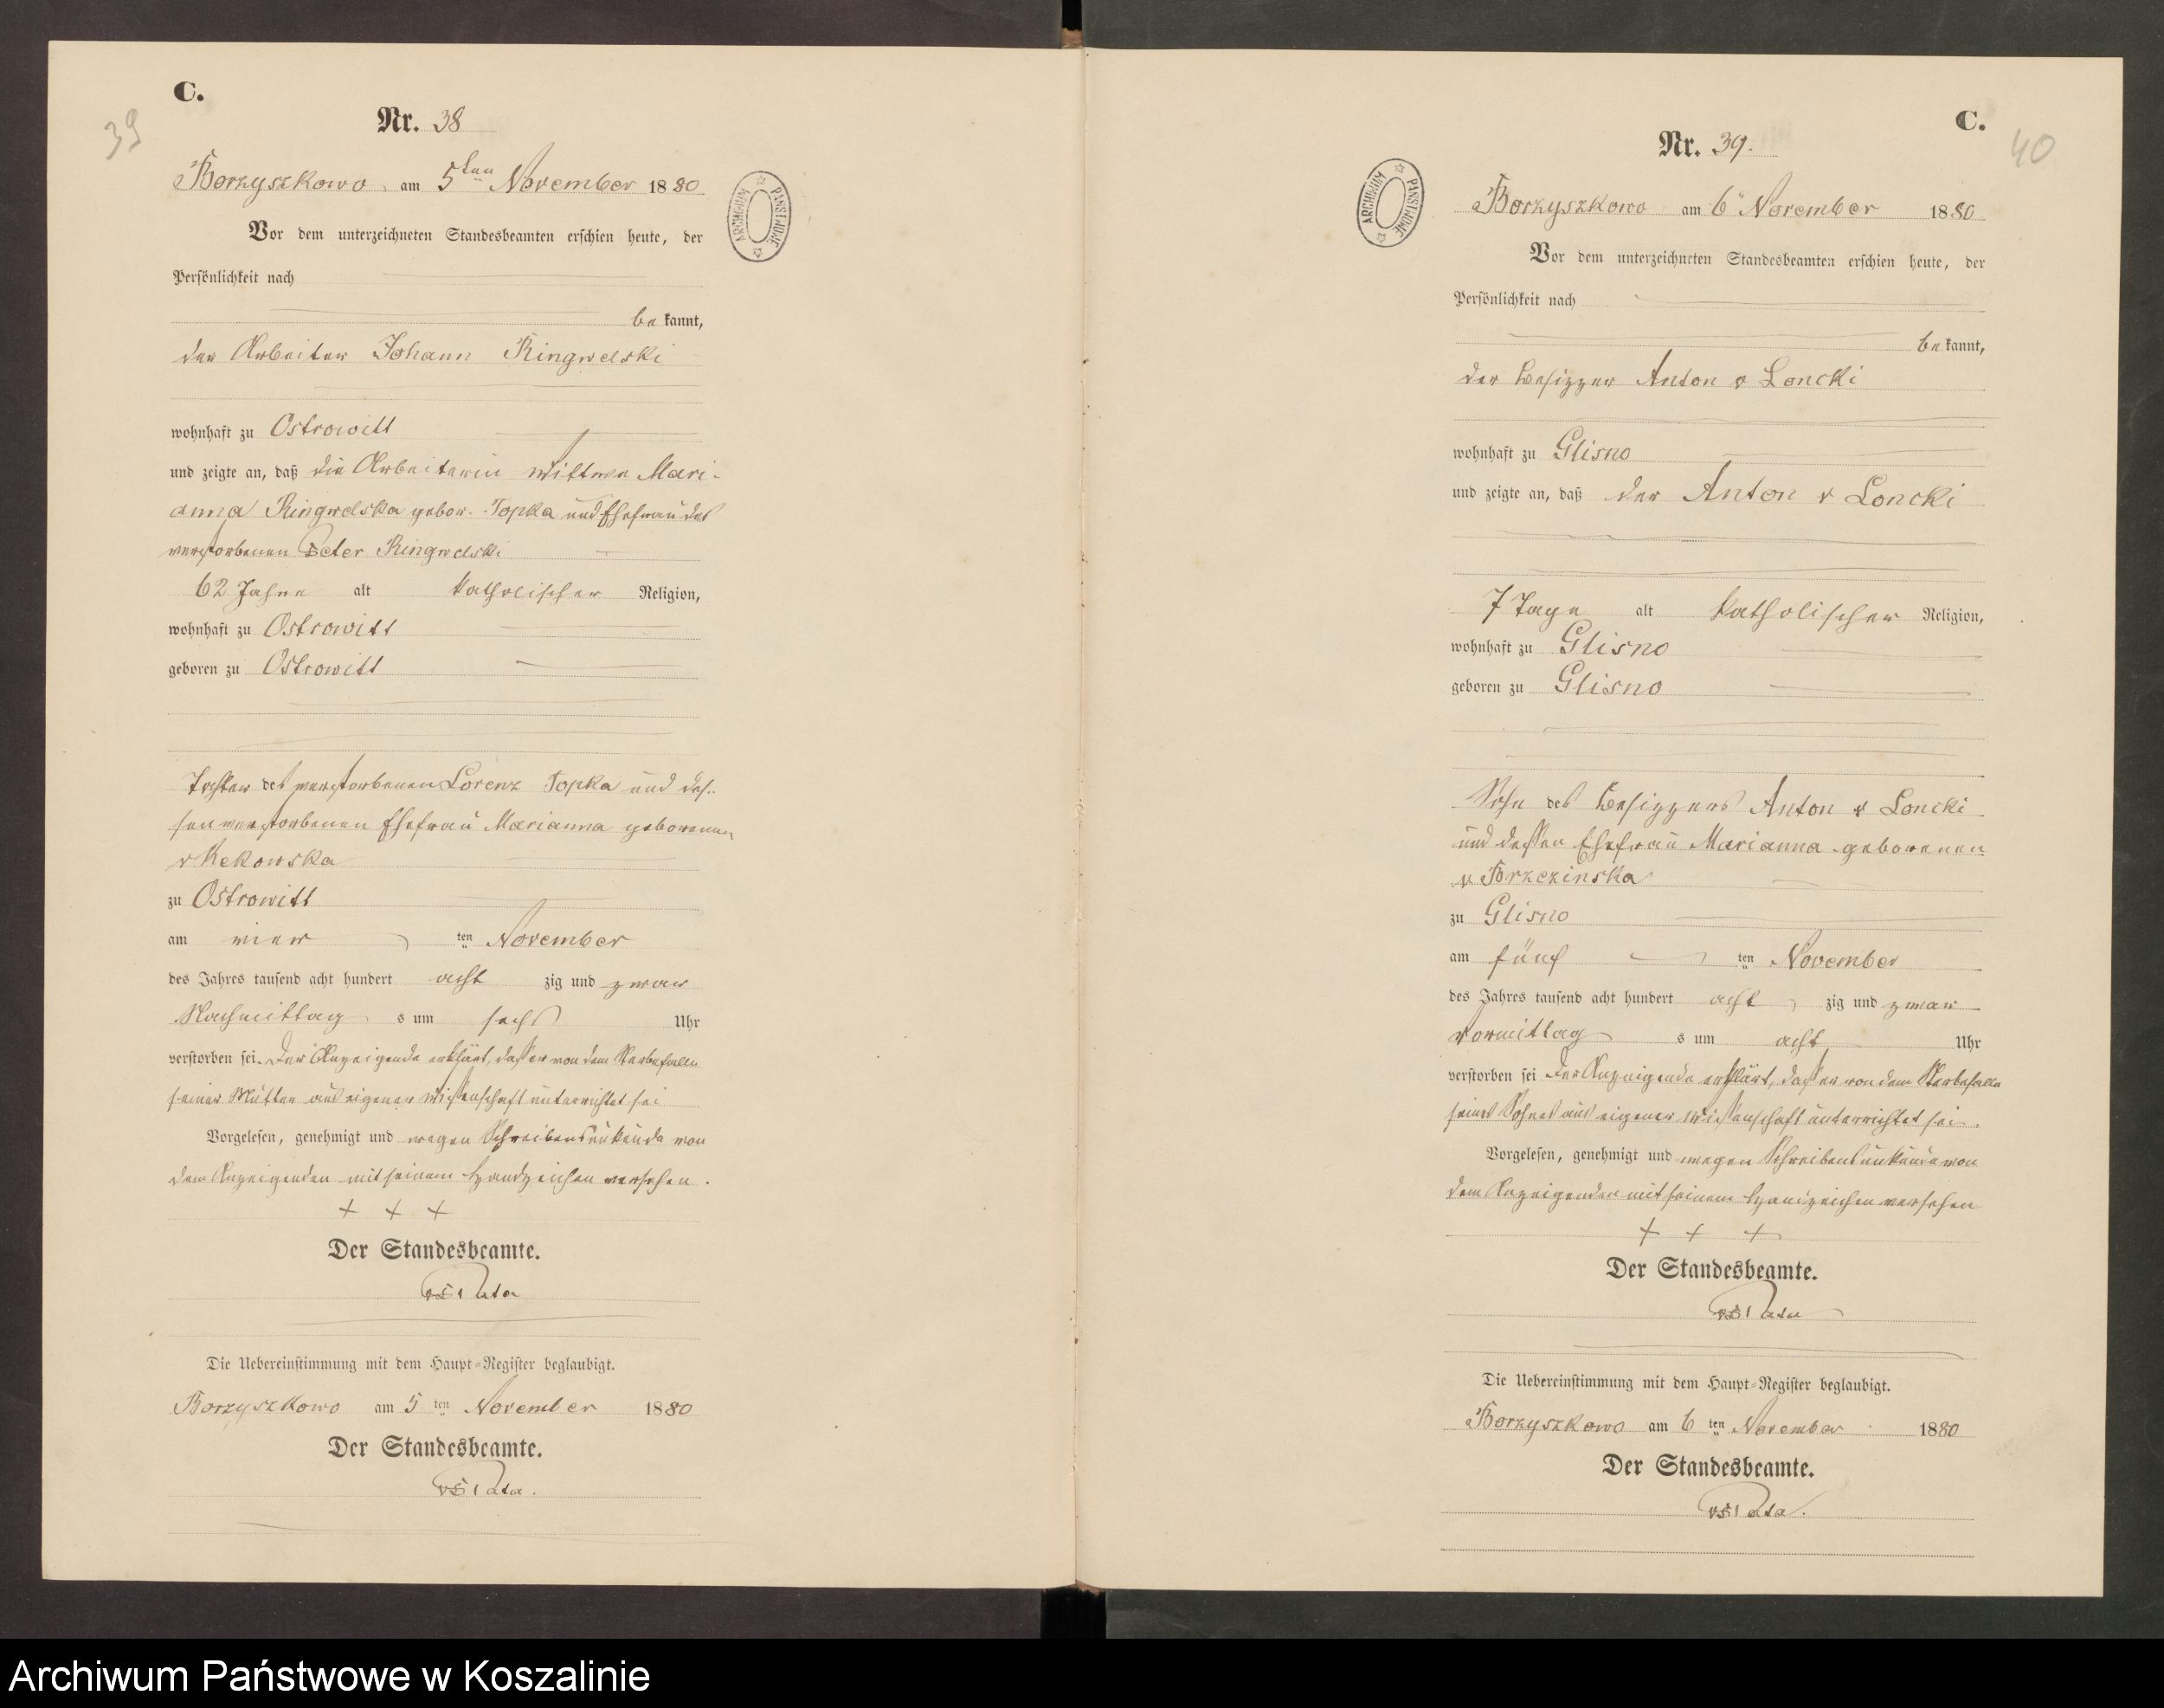 C.
39
Nr. 38
Borzyszkowo am 5ten November 1880
Vor dem unterzeichneten Standesbeamten erschien heute, der
Persönlichkeit nach
be kannt,
der Arbeiter Johann Ringwelski
wohnhaft zu Ostrowitt
und zeigte an, daß die Arbeiterin Wittwe Mari-
anna Ringwelska gebor. Topka und Ehefrau des
verstorbenen Peter Ringwelski
62 Jahre alt katholischer Religion,
wohnhaft zu Ostrowitt
geboren zu Ostrowitt
Tochter des verstorbenen Lorenz Topka und des-
sen verstorbenen Ehefrau Marianna geborenen
v Kekowska
zu Ostrowitt
am vier ten November
des Jahres tausend acht hundert acht zig und zwar
Nachmittag s um sechs Uhr
verstorben sei. Der Anzeigende erklärt, daß er von dem Sterbefalle
seiner Mutter aus eigener Wissenschaft unterrichtet sei
Vorgelesen, genehmigt und wegen Schreibensunkunde von
dem Anzeigenden mit seinem Handzeichen versehen.
+ + +
Der Standesbeamte.
Die Uebereinstimmung mit dem Haupt-Register beglaubigt.
Borzyszkowo am 5 ten November 1880
Der Standesbeamte.
C.
40
Nr. 39.
ARCHIWUM PAŃSTWOWE
ARCHIWUM PAŃSTWOWE
Borzyszkowo am 6ⁿ November 1880
Vor dem unterzeichneten Standesbeamten erschien heute, der
Persönlichkeit nach
be kannt,
der Besitzer Anton v Loncki
wohnhaft zu Glisno
und zeigte an, daß der Anton v Loncki
7 Tage alt katholischer Religion,
wohnhaft zu Glisno
geboren zu Glisno
Sohn des Besitzers Anton v Loncki
und dessen Ehefrau Marianna geborenen
v Brzezinska
zu Glisno
am fünf ten November
des Jahres tausend acht hundert acht zig und zwar
Vormittag s um acht Uhr
verstorben sei Der Anzeigende erklärt, daß er von dem Sterbefalle
seines Sohnes aus eigener Wissenschaft unterrichtet sei.
Vorgelesen, genehmigt und wegen Schreibensunkunde von
dem Anzeigenden mit seinem Handzeichen versehen
+ + +
Der Standesbeamte.
Die Uebereinstimmung mit dem Haupt-Register beglaubigt.
Borzyszkowo am 6 ten November 1880
Der Standesbeamte.
Archiwum Państwowe w Koszalinie